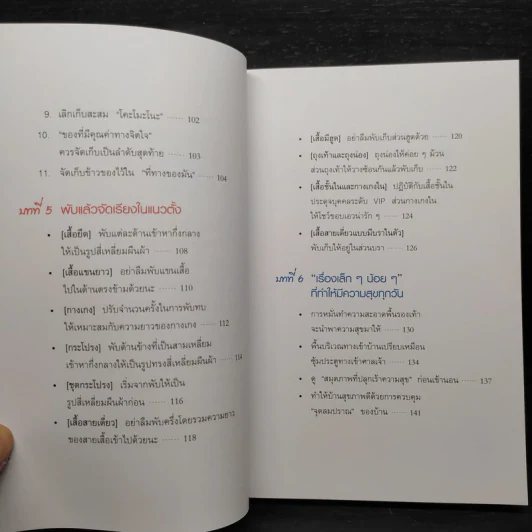 9. เลิกเก็บสะสม "โคะโมะโนะ" ...... 102
10. "ของที่มีคุณค่าทางจิตใจ"
ควรจัดเก็บเป็นลำดับสุดท้าย ...... 103
11. จัดเก็บข้าวของไว้ใน "ที่ทางของมัน" ...... 104
บทที่ 5 พับแล้วจัดเรียงในแนวตั้ง
• [เสื้อยืด] พับแต่ละด้านเข้าหากึ่งกลาง
ให้เป็นรูปสี่เหลี่ยมผืนผ้า ...... 108
• [เสื้อแขนยาว] อย่าลืมพับแขนเสื้อ
ไปในด้านตรงข้ามด้วยนะ ...... 110
• [กางเกง] ปรับจำนวนครั้งในการพับทบ
ให้เหมาะสมกับความยาวของกางเกง ...... 112
• [กระโปรง] พับด้านข้างที่เป็นสามเหลี่ยม
เข้าหากึ่งกลางให้เป็นรูปทรงสี่เหลี่ยมผืนผ้า ...... 114
• [ชุดกระโปรง] เริ่มจากพับให้เป็น
รูปสี่เหลี่ยมผืนผ้าก่อน ...... 116
• [เสื้อสายเดี่ยว] อย่าลืมพับครึ่งโดยรวมความยาว
ของสายเสื้อเข้าไปด้วยนะ ...... 118
• [เสื้อมีฮูด] อย่าลืมพับเก็บส่วนฮูดด้วย ...... 120
• [ถุงเท้าและถุงน่อง] ถุงน่องให้ค่อย ๆ ม้วน
ส่วนถุงเท้าให้วางซ้อนกันแล้วพับเก็บ ...... 122
• [เสื้อชั้นในและกางเกงใน] ปฏิบัติกับเสื้อชั้นใน
ประดุจบุคคลระดับ VIP ส่วนกางเกงใน
ให้โชว์ขอบเอวน่ารัก ๆ ...... 124
• [เสื้อสายเดี่ยวแบบมีบราในตัว]
พับเก็บให้อยู่ในส่วนบรา ...... 126
บทที่ 6 "เรื่องเล็ก ๆ น้อย ๆ"
ที่ทำให้มีความสุขทุกวัน
• การหมั่นทำความสะอาดพื้นรองเท้า
จะนำพาความสุขมาให้ ...... 130
• พื้นบริเวณทางเข้าบ้านเปรียบเหมือน
ซุ้มประตูทางเข้าศาลเจ้า ...... 134
• ดู "สมุดภาพที่ปลุกเร้าความสุข" ก่อนเข้านอน ...... 137
• ทำให้บ้านสุขภาพดีด้วยการควบคุม
"จุดลมปราณ" ของบ้าน ...... 141